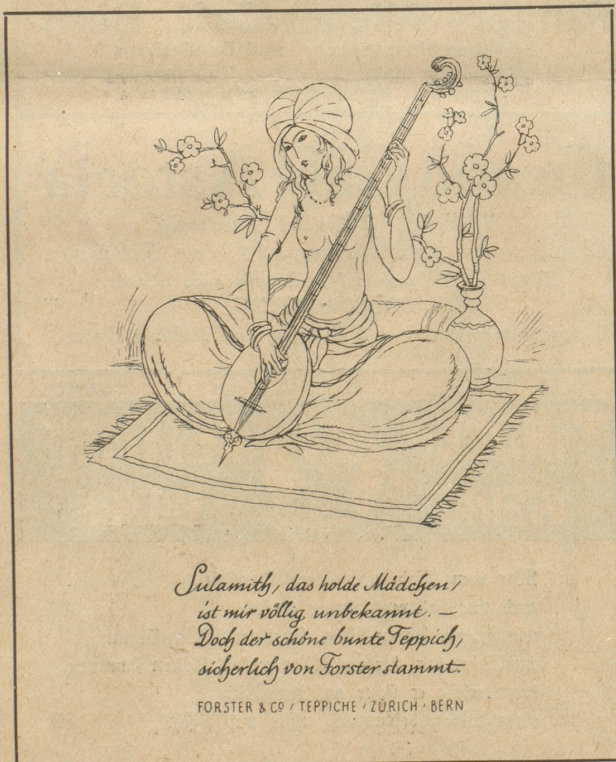 Sulamith, das holde Mädchen,
ist mir völlig unbekannt. —
Doch der schöne bunte Teppich,
sicherlich von Forster stammt.
FORSTER & Co / TEPPICHE / ZÜRICH / BERN